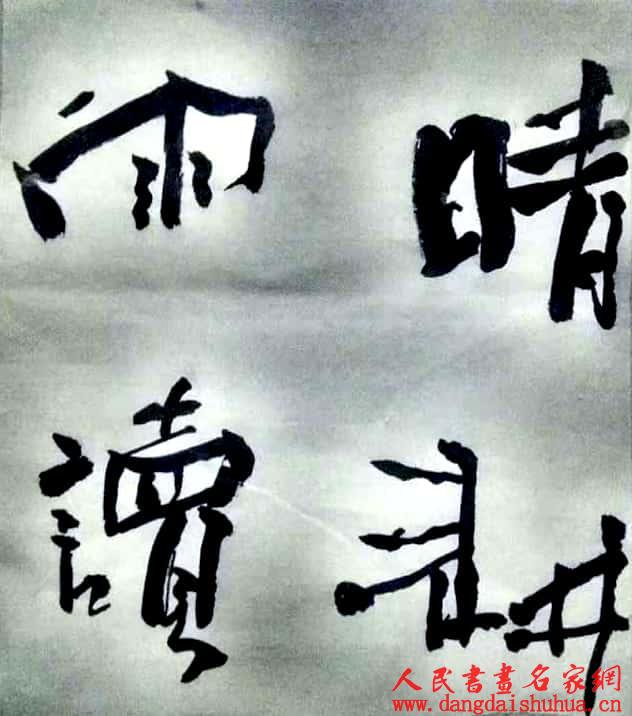 晴耕
雨讀
人民書畫名家網
www.dangdaishuhua.cn